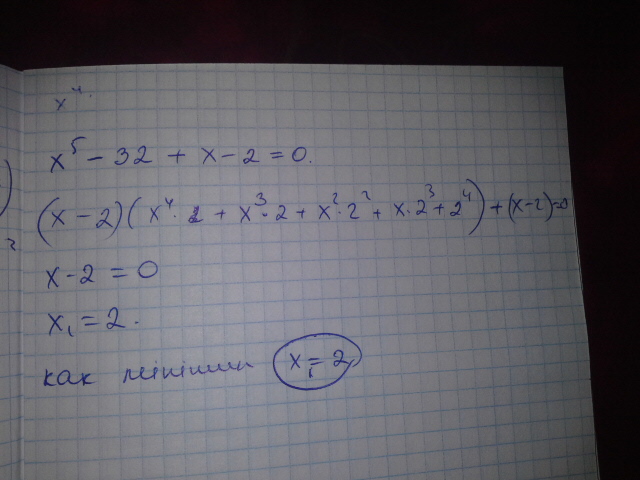 x⁴.
x⁵ - 32 + x - 2 = 0.
(x - 2)(x⁴ · 2 + x³ · 2 + x² · 2² + x · 2³ + 2⁴) + (x - 2) = 0
x - 2 = 0
x₁ = 2.
как мінімим x₁ = 2